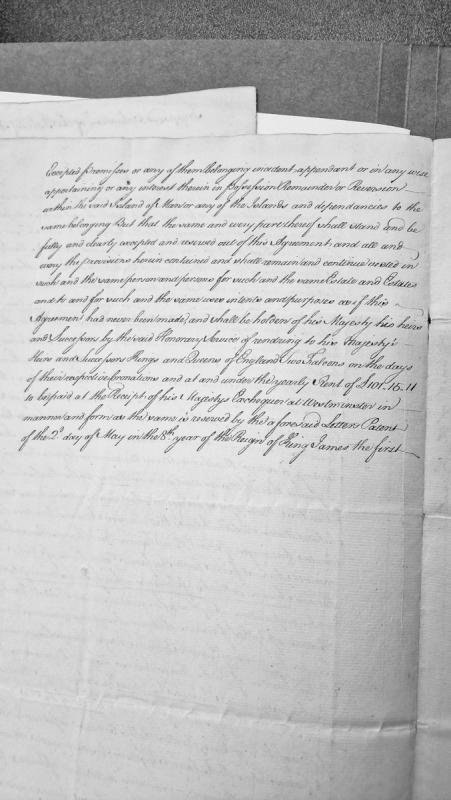 Excepted Premisses or any of them Belonging incident appendant or in any wise
appertaining or any interest therein in Possession Remainder or Reversion
within the said Island of Man or any of the Islands and dependancies to the
same belonging But that the same and every part thereof shall stand and be
fully and clearly excepted and reserved out of this Agreement and all and
every the provisions herein contained and shall remain and continue vested in
such and the same person and persons for such and the same Estate and Estates
and to and for such and the same uses intents and purposes as if this
Agreement had never been made, and shall be holden of his Majesty his heirs
and Successors by the said Honorary Service of rendring to his Majesty's
Heirs and Successors Kings and Queens of England Two Falcons on the days
of their respective Coronations and at and under the yearly Rent of £101. 15. 11
to be paid at the Receipt of his Majestys Exchequer at Westminster in
manner and form as the same is reserved by the aforesaid Letters Patent
of the 2d. day of May in the 8th. year of the Reign of King James the first